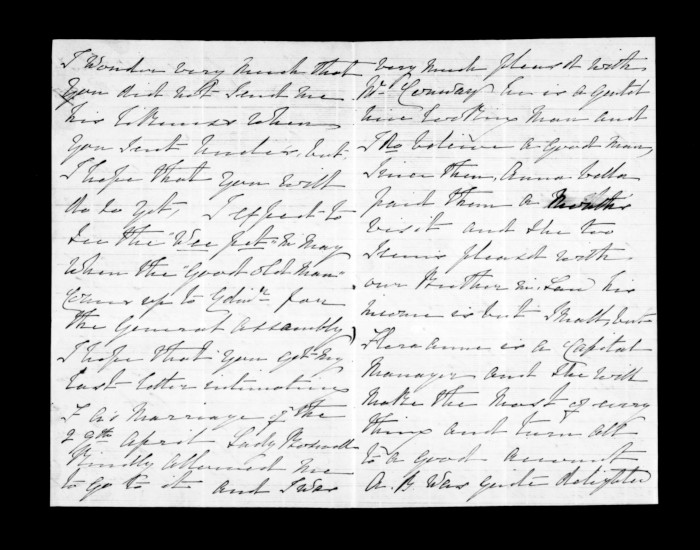 I Wonder very much that
you did not send me
his likeness when
you sent Unders, but
I hope that you will
do so yet, I expect to
see the "Wee pet" in May
when the "Good old Man"
comes up to Edinr for
the General Assembly,
I hope that you got my
last letter intimating
F. A's Marriage of the
29th April Lady Boswell
Kindly allowed me
to go to it and I was
very much pleased with
Mr Conway he is a gentel
nice looking Man and
I do believe a good man,
Since then, Anna-bella
paid them a Month's
visit and she too
seems pleased with
our Brother in Law his
income is but small, but
Flora anne is a Capital
Manager and she will
make the most of every
thing and turn all
to a good account
A. B was quite delighted